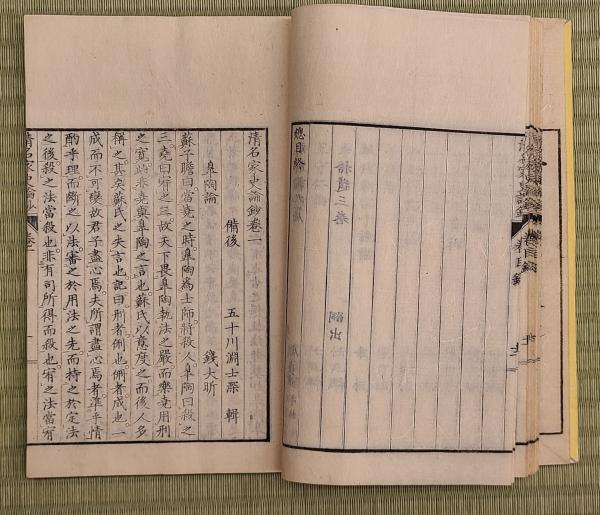 總目終
拾遺三卷
嗣出
清名家史論鈔卷一
備後 五十川淵士深 輯
皐陶論 錢大昕
蘇子瞻曰當堯之時皐陶為士師將殺人皐陶曰殺之
三堯曰宥之三故天下畏皐陶執法之嚴而樂堯用刑
之寬此非堯與皐陶之言也蘇氏以意度之而後人多
稱之甚矣蘇氏之失言也記曰刑者侀也侀者成也一
成而不可變故君子盡心焉夫所謂盡心焉者準乎情
酌乎理而斷之以法審之於用法之先而持之於定法
之後殺之法當殺也非有司所得而殺也宥之法當宥
清名家史論鈔 卷一